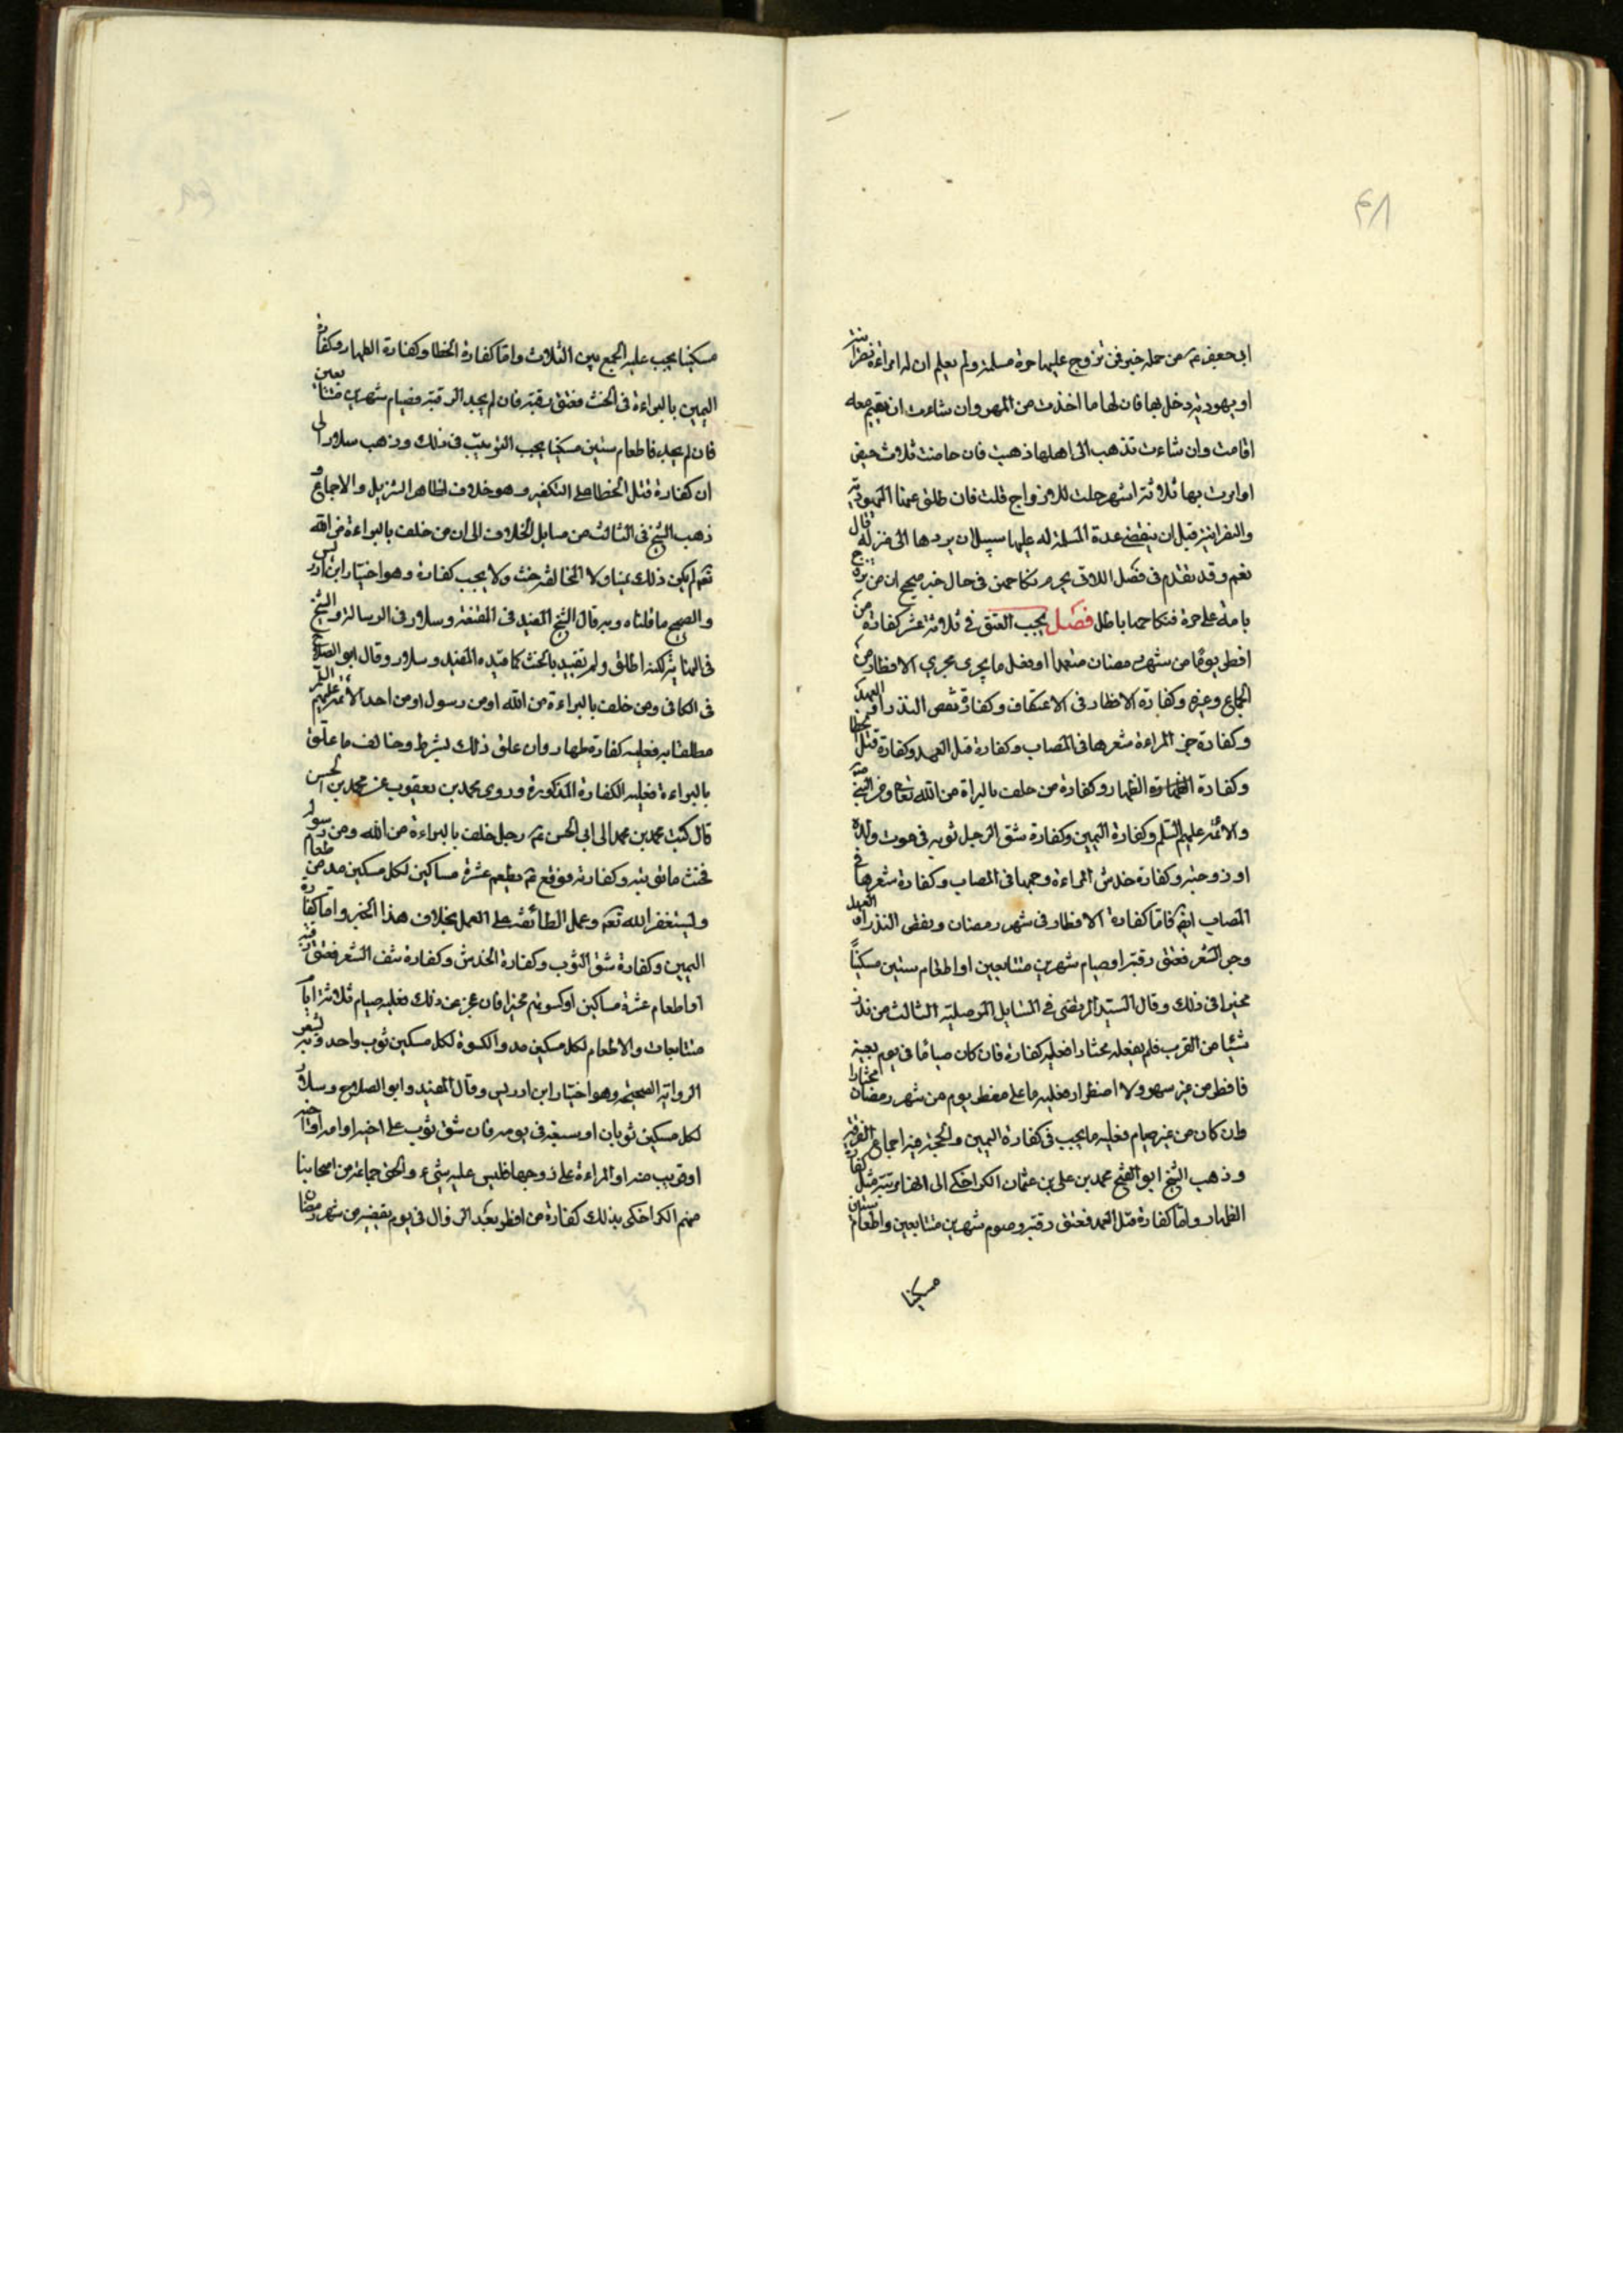 ٤٨
ابى جعفر ع من جملة خبر فمن تزوج عليها حرة مسلمة ولم تعلم ان له امراءة نصرانية
او يهودية دخل بها فان لها ما اخذت من المهر وان شاءت ان تقيم معه
اقامت وان شاءت تذهب الى اهلها ذهبت فان حاضت ثلاث حيض
او مرت بها ثلاثة اشهر حلت للازواج قلت فان طلق عنها اليهودية
والنصرانية قبل ان ينقضى عدة المسلمة له عليها سبيل ان يردها الى منزله قال
نعم وقد تقدم فى فصل اللاتى يحرم نكاحهن فى حال خبر صحيح ان من تزوج
بامة على حرة فنكاحها باطل فصل يجب العتق فى ثلاثة عشر كفارة من
افطر يوما من شهر رمضان متعمدا او يفعل ما يجرى مجرى الافطار من
الجماع وغيره وكفارة الافطار فى الاعتكاف وكفارة نقض النذر او العهد
وكفارة جز المراءة شعرها فى المصاب وكفارة قتل العمد وكفارة قتل الخطا
وكفارة الظهار وكفارة من حلف بالبراة من الله تعالى ومن النبى ص
والائمة عليهم السلم وكفارة اليمين وكفارة شق الرجل ثوبه فى موت ولده
او زوجته وكفارة خدش المراءة وجهها فى المصاب وكفارة شعرها فى
المصاب ايضا فاما كفارة الافطار فى شهر رمضان ونقض النذر او العهد
وجز الشعر فعتق رقبة او صيام شهرين متتابعين او اطعام ستين مسكيناً
مخيرا فى ذلك وقال السيد المرتضى فى المسايل الموصلية الثالث من نذر
شيئا من القرب فلم يفعله مختارا فعليه كفارة فان كان صياما فى يوم بعينه
فافطر من غير سهو ولا اضطرار فعليه ما على مفطر يوم من شهر رمضان مختارا
وان كان من غير صيام فعليه ما يجب فى كفارة اليمين والحجة فيه اجماع الفرقة
وذهب الشيخ ابو الفتح محمد بن على بن عثمان الكراجكى الى انها مرتبة مثل كفارة
الظهار واما كفارة قتل العمد فعتق رقبة وصوم شهرين متتابعين واطعام ستين
مسكينا
مسكينا يجب عليه الجمع بين الثلاث واما كفارة الخطا وكفارة الظهار وكفارة
اليمين بالبراءة فى الحنث فعتق رقبة فان لم يجد الرقبة فصيام شهرين متتابعين
فان لم يجد فاطعام ستين مسكينا يجب الترتيب فى ذلك وذهب سلار الى
ان كفارة قتل الخطا على التخيير وهو خلاف لظاهر التنزيل والاجماع و
ذهب الشيخ فى الثالث من مسايل الخلاف الى ان من حلف بالبراءة من الله
تعم لم يكن ذلك يمينا ولا المخالفة حنث ولا يجب كفارة وهو اختيار ابن ادريس
والصحيح ما قلناه وبه قال الشيخ المفيد فى المقنعة وسلار فى الرسالة والشيخ
فى النهاية لكنه اطلق ولم تقييد بالحنث كما قيده المفيد وسلار وقال ابو الصلاح
فى الكافى ومن حلف بالبراءة من الله او من رسول او من احد الائمة عليهم السلم
مطلقا به فعليه كفارة ظهار وان علق ذلك بشرط وخالف ما علق
بالبراءة فعليه الكفارة المذكورة وروى محمد بن يعقوب عن محمد بن الحسن
قال كتب محمد بن محمد الى ابى الحسن ع رجل حلف بالبراءة من الله ومن رسول
فحنث ما توبته وكفارته فوقع ع يطعم عشرة مساكين لكل مسكين مد من طعام
وليستغفر الله تعم وعمل الطائفة على العمل بخلاف هذا الخبر واما كفارة
اليمين وكفارة شق الثوب وكفارة الخدش وكفارة نتف الشعر فعتق رقبة
او اطعام عشرة مساكين او كسوتهم مخيرا فان عجز عن ذلك فعليه صيام ثلاثة ايام
متتابعات والاطعام لكل مسكين مد والكسوة لكل مسكين ثوب واحد وبه يشعر
الرواية الصحيحة وهو اختيار ابن ادريس وقال المفيد وابو الصلاح وسلار
لكل مسكين ثوبان او يسبغه فى يومه فان شق ثوب على اخيه او امه او اخته
او قريب منه او المراءة على زوجها فليس عليه شىء والحق جماعة من اصحابنا
منهم الكراجكى بذلك كفارة من افطر بعد الزوال فى يوم يقضيه من شهر رمضان